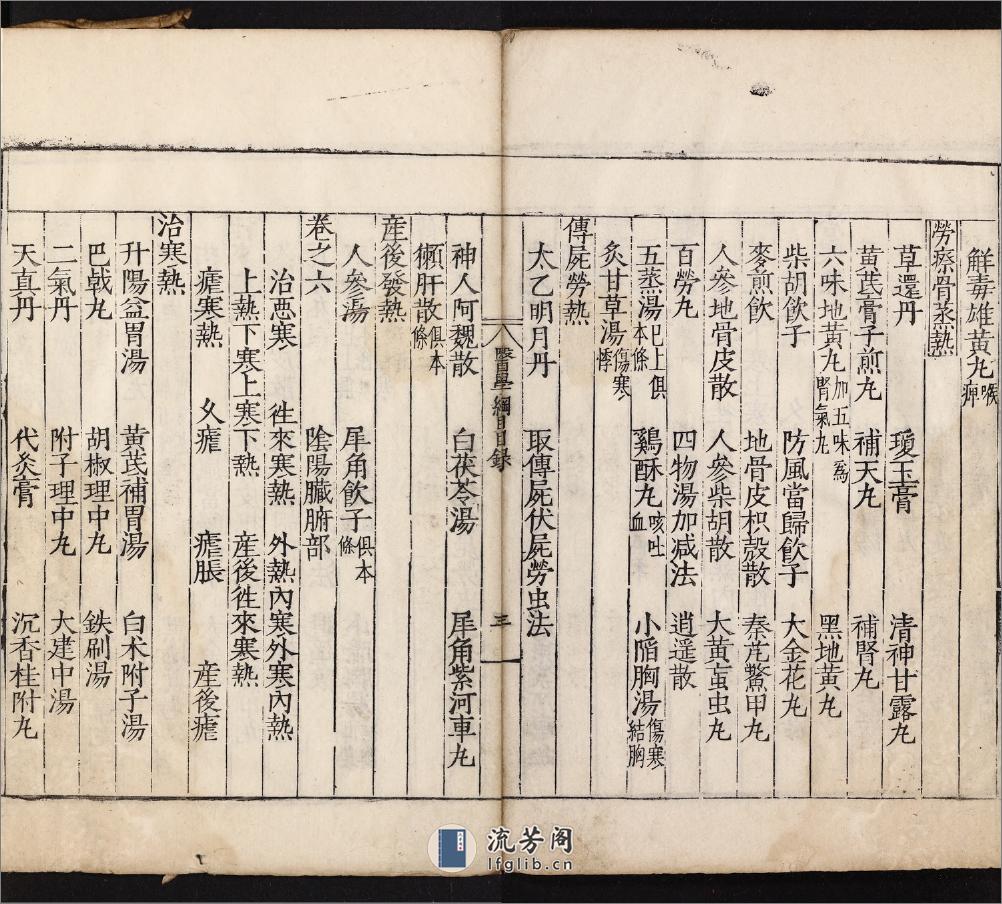 解毒雄黃丸喉痺
勞瘵骨蒸熱
草還丹 瓊玉膏 清神甘露丸
黃芪膏子煎丸 補天丸 補腎丸
六味地黃丸加五味爲腎氣丸 黑地黃丸
柴胡飲子 防風當歸飲子 大金花丸
麥煎飲 地骨皮枳殼散 秦芃鱉甲丸
人參地骨皮散 人參柴胡散 大黃䖟虫丸
百勞丸 四物湯加减法 逍遥散
五蒸湯已上俱本條 鷄酥丸咳吐血 小陷胸湯傷寒結胸
炙甘草湯傷寒悸
傳屍勞熱
太乙明月丹 取傳屍伏屍勞虫法
醫學綱目目录 三
神人阿魏散 白茯苓湯 犀角紫河車丸
獺肝散俱本條
産後發熱
人參湯 犀角飲子俱本條
卷之六 陰陽臟腑部
治惡寒 徃來寒熱 外熱內寒外寒內熱
上熱下寒上寒下熱 産後徃來寒熱
瘧寒熱 久瘧 瘧脹 産後瘧
治寒熱
升陽益胃湯 黃芪補胃湯 白术附子湯
巴戟丸 胡椒理中丸 鉄刷湯
二氣丹 附子理中丸 大建中湯
天真丹 代灸膏 沉香桂附丸
流芳阁
lfglib.cn